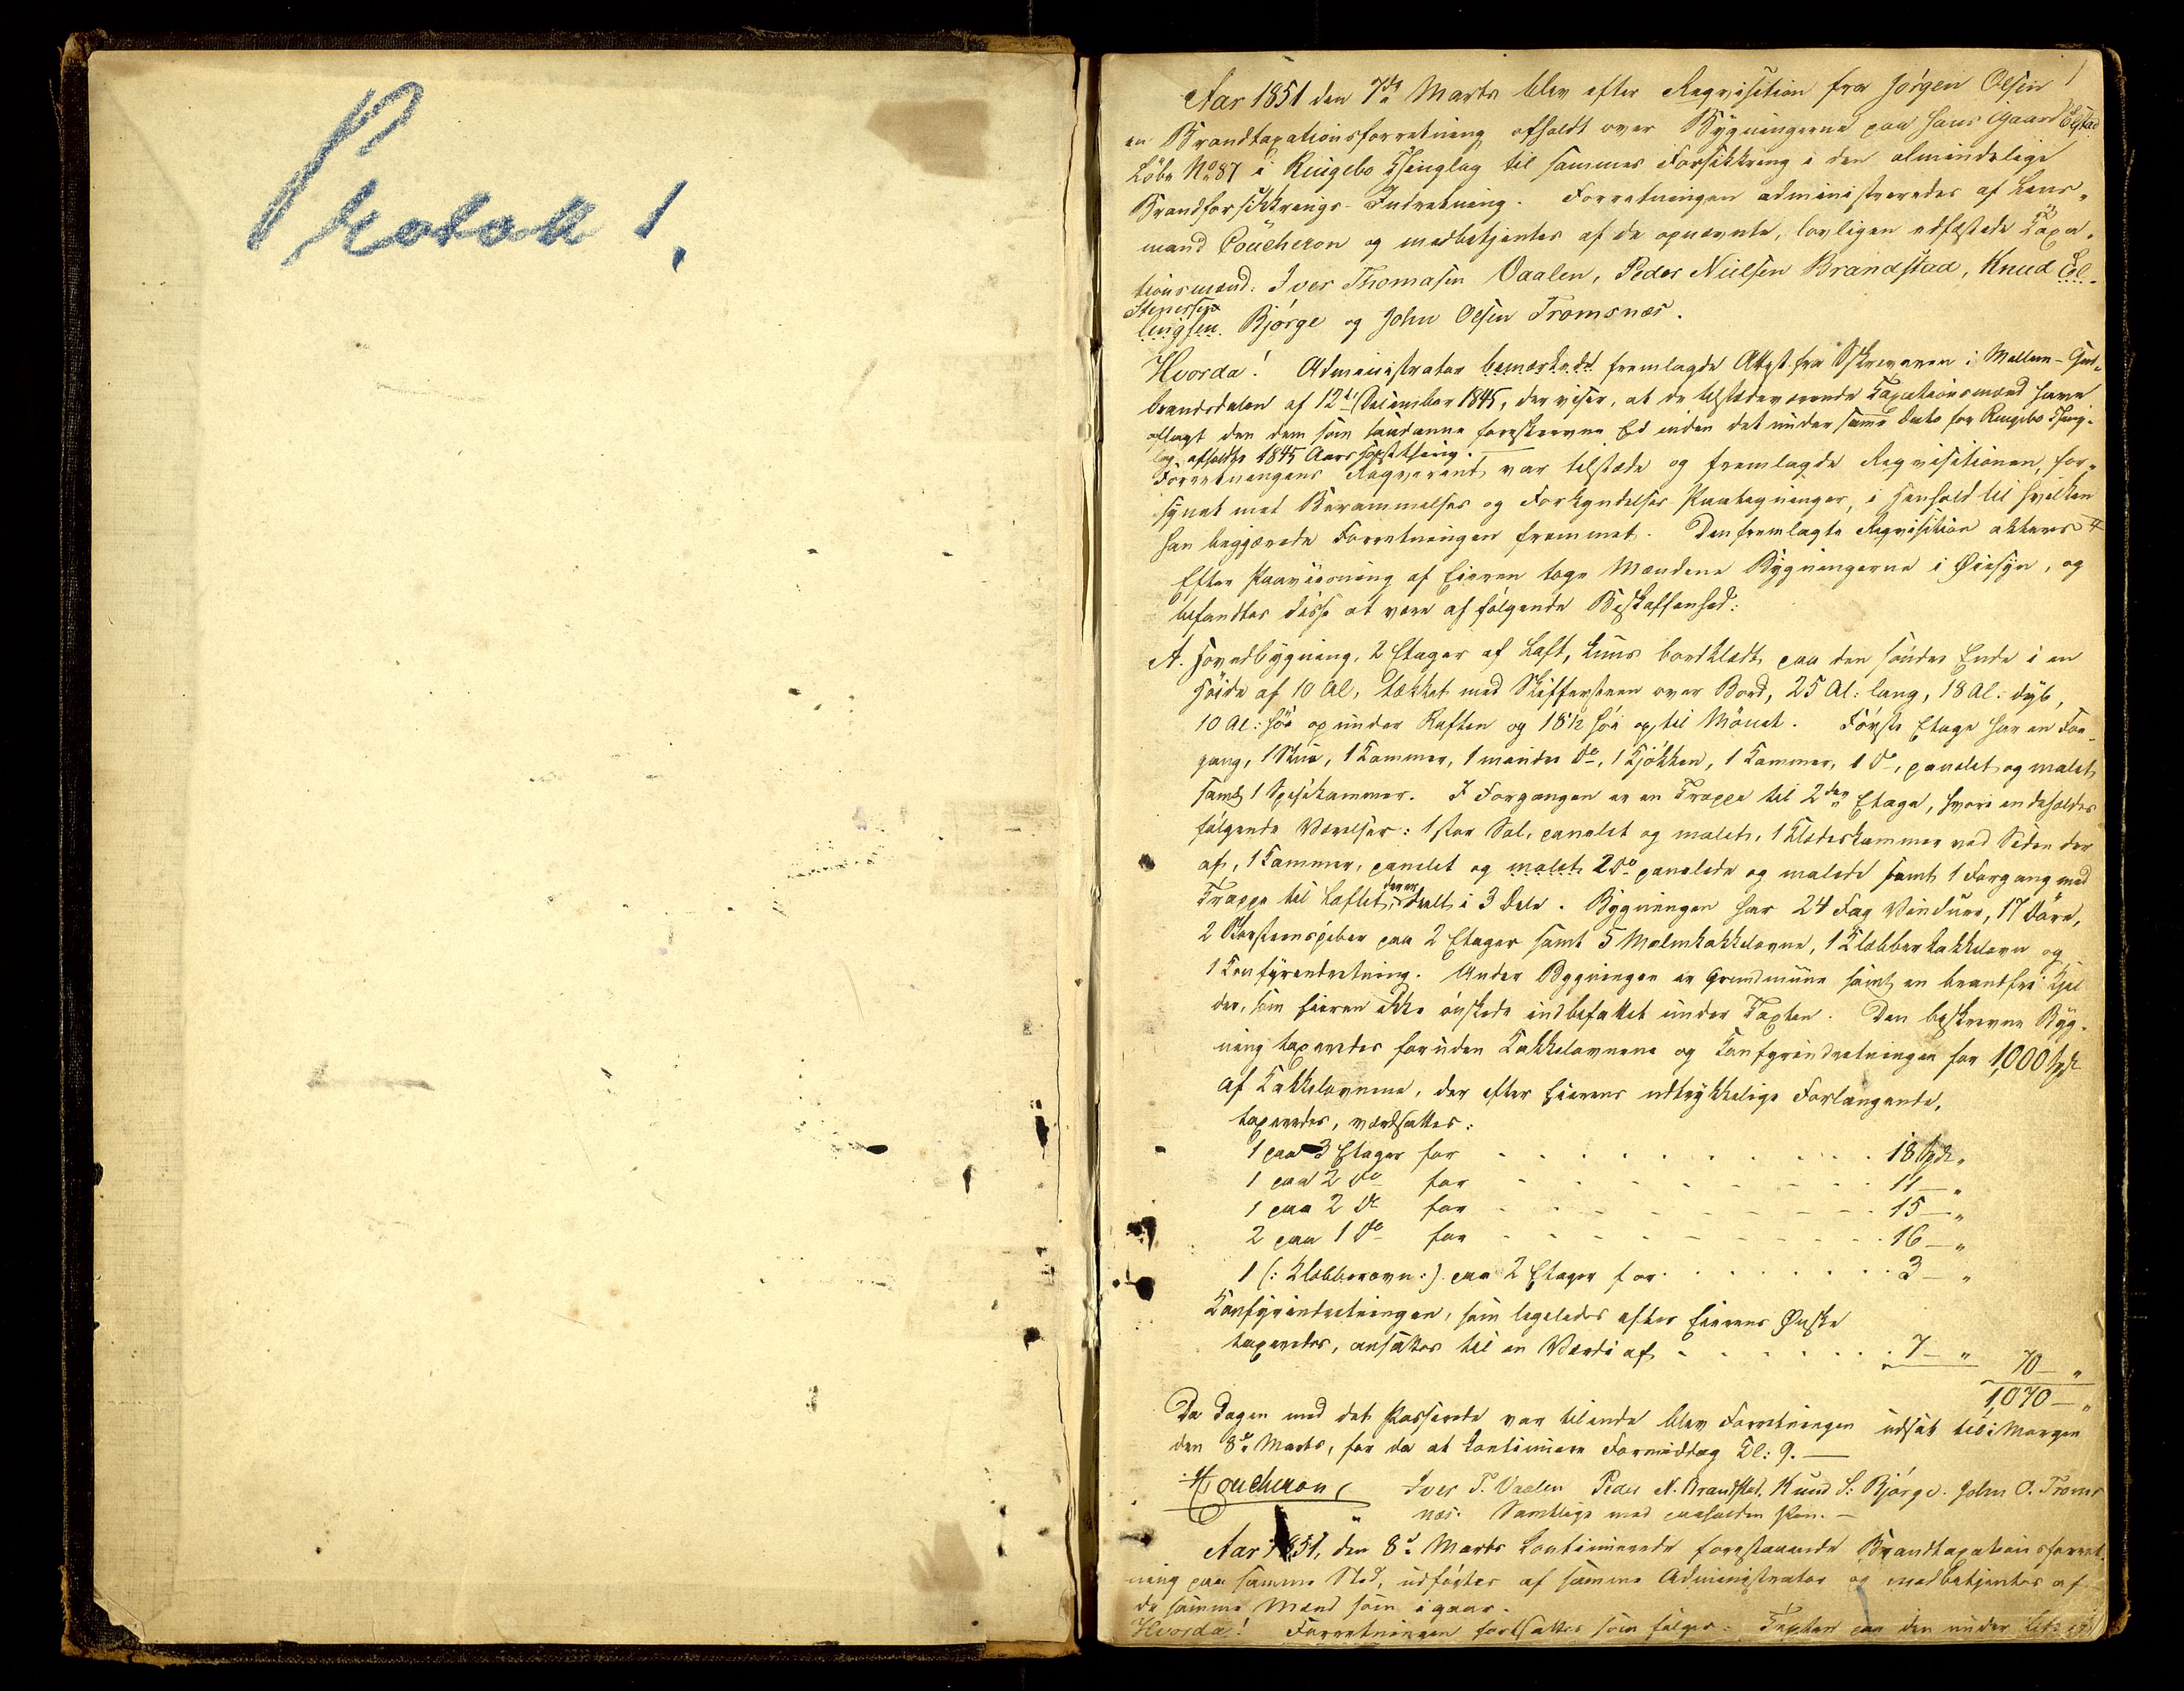 Protok 1.
1
Aar 1851 den 7de Marts blev efter Reqvisition fra Jörgen Olsen
en Brandtaxationsforretning afholdt over Bygningerne paa hans Gaard Elstad
Löbe No 87 i Ringebo Thinglag til sammes Forsikkring i den almindelige
Brandforsikkrings-Indretning. Forretningen administreredes af Lens-
mand Coucheron og medbetjentes af de opnævnte, lovligen edfæstede Taxa-
tionsmænd: Iver Thomasen Vaalen, Peder Nielsen Brandstad, Knud El-
Stenersen
lingsen Bjørge og John Olsen Tromsnæs.
Hvorda! Administrator bemærkede fremlagde Attest fra Skriveren i Mellem-Gud-
brandsdalen af 12te December 1845, der viser, at de tilstedeværende Taxationsmænd have
aflagt den dem som saadanne foreskrevne Ed inden det under samme Dato for Ringebo Thing-
lag afholdte 1845 Aars Høstthing.
Forretningens Reqvirent var tilstæde og fremlagde Reqvisitionen, for-
synet med Berammelses og Forkyndelses Paategninger, i Henhold til hvilken
han begjærede Forretningen fremmet. Den fremlagte Reqvisition akteres
Efter Paaviisning af Eieren toge Mændene Bygningerne i Øiesyn, og
befandtes disse at være af følgende Beskaffenhed:
A. Hovedbygning, 2 Etager af Laft, kuns bordklædt paa den söndre Ende i en
Höide af 10 Al, tækket med Skiffersteen over Bord, 25 Al: lang, 18 Al: dyb,
10 Al: höi op under Raften og 18 1/2 höi op til Mönet. Første Etage har en For-
gang, 1 Stue, 1 Kammer, 1 mindre do, 1 Kjökken, 1 Kammer, 1 do, panelet og malet,
samt 1 Spisekammer. I Forgangen er en Trappe til 2den Etage, hvori indeholdes
følgende Værelser: 1 stor Sal, panelet og malet, 1 Klædeskammer ved Siden der
af, 1 Kammer, panelet og malet, 2 do panelede og malede samt 1 Forgang med
Trappe til Loftet, der er deelt i 3 Dele. Bygningen har 24 Fag Vinduer, 17 Döre,
2 Skorsteenspiber paa 2 Etager samt 5 Malmkakkelovne, 1 Klæbberkakkelovn og
1 Komfyrindretning. Under Bygningen er Grundmuur samt en brandfri Kjel
der, som Eieren ikke önskede indbefattet under Taxten. Den beskrevne Byg-
ning taxeredes foruden Kakkelovnene og Komfyrindretningen for 1,000 Spd
Af Kakkelovnene, der efter Eierens udtrykkelige Forlangende,
taxeredes, værdsattes:
1 paa 3 Etager for . . . . . . 18 Spd "
1 paa 2 do for - - - - - - 11 — "
1 paa 2 do for - - - - - - 15 — "
2 paa 1 do for - - - - - - 16 — "
1 (: Klæbberovn :) paa 2 Etager for . . . . . . 3 — "
Komfyrindretningen, som ligeledes efter Eierens Ønske
taxeredes, ansattes til en Værdi af - - - - - - 7 — " 70 — "
1,070 — "
Da Dagen med det Passerede var tilende blev Forretningen udsat til i Morgen
den 8de Marts, for da at kontinuere Formiddag Kl: 9. —
Coucheron Iver T. Vaalen Peder N. Brandstad, Knud S. Bjørge. John O. Troms
næs. Samtlige med paaholden Pen. —
Aar 1851, den 8de Marts kontinuerede forestaaende Brandtaxationsforret
ning paa samme Sted, udførtes af samme Administrator og medbetjentes af
de samme Mænd som igaar.
Hvorda! Forretningen fortsattes som følger: Taxten paa den under Litr: A